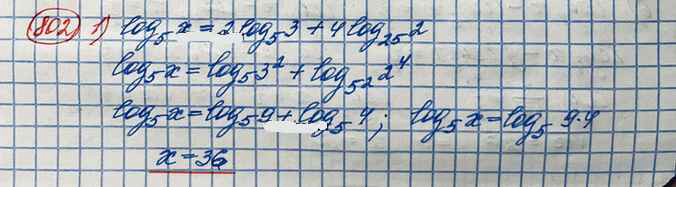 802 1) log₅ x = 2 log₅ 3 + 4 log₂₅ 2
log₅ x = log₅ 3² + log₅₂ 2⁴
log₅ x = log₅ 9 + log₅ 4 ; log₅ x = log₅ 9·4
x = 36